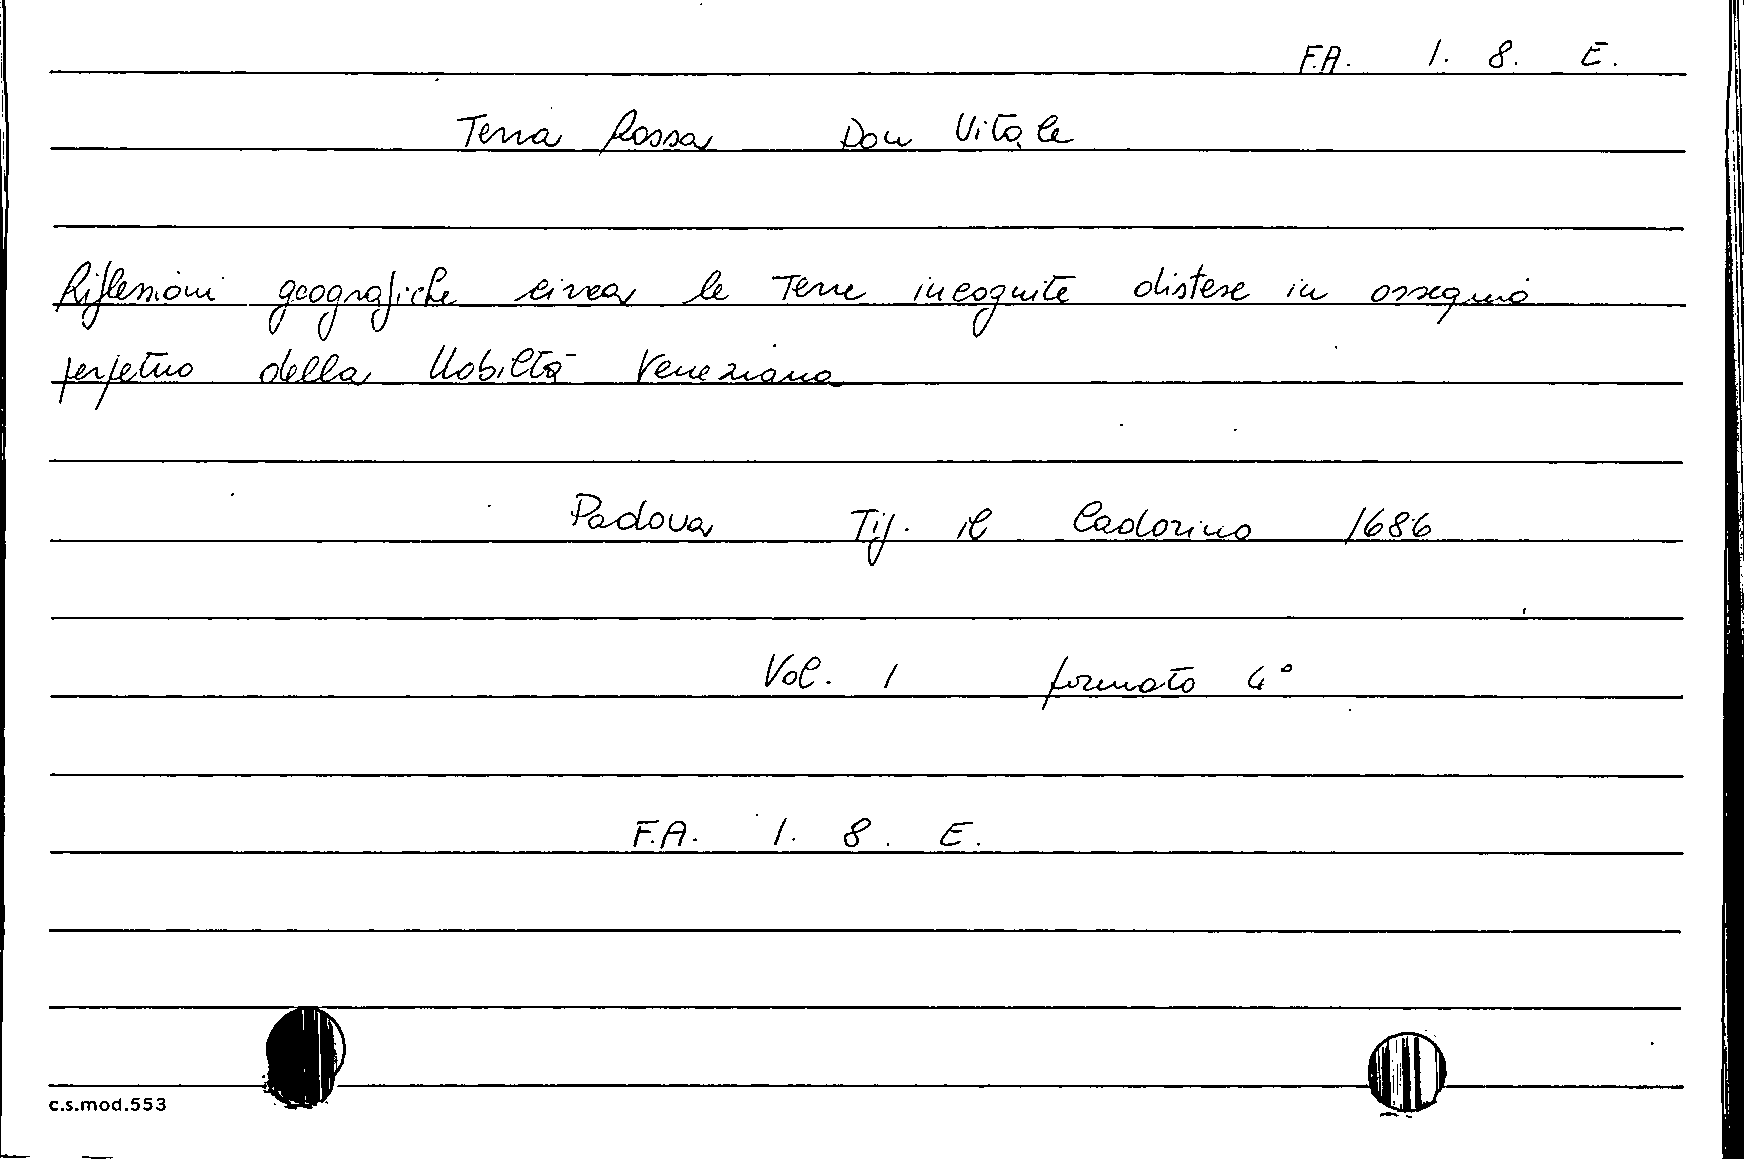 F.A. 1. 8. E.
Terra Rossa Don Vitale
Riflessioni geografiche circa le Terre incognite distese in ossequio
perpetuo della Nobiltà Veneziana
Padova Tip. il Cadorino 1686
Vol. 1 formato 4°
F.A. 1. 8. E.
c.s.mod.553